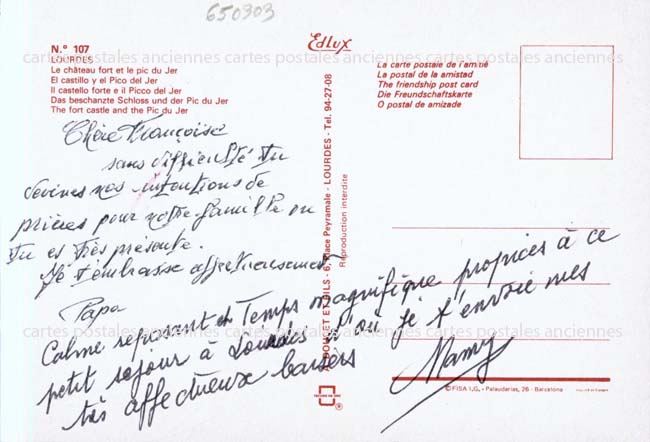 650303
Edlux
N.° 107
LOURDES
Le château fort et le pic du Jer
El castillo y el Pico del Jer
Il castello forte e il Picco del Jer
Das beschanzte Schloss und der Pic du Jer
The fort castle and the Pic du Jer
La carte postale de l'amitié
La postal de la amistad
The friendship post card
Die Freundschaftskarte
O postal de amizade
cartes postales anciennes cartes postales anciennes cartes postales anciennes
Chère Françoise
sans difficulté tu
devines nos intentions de
prières pour notre famille ou
tu es très présente.
Je t'embrasse affectueusement
Papa
Calme reposant et Temps magnifique propices à ce
petit séjour à Lourdes d'où je t'envoie mes
très affectueux baisers
Mamy
A. DOUCET ET FILS - 6, Place Peyramale - LOURDES - Tel. 94-27-08
Reproduction interdite
cartes postales anciennes cartes postales anciennes cartes postales anciennes
© FISA I.G. - Palaudarias, 26 - Barcelona
®